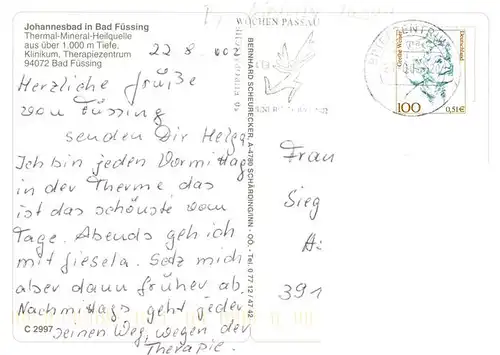 Johannesbad in Bad Füssing
Thermal-Mineral-Heilquelle
aus über 1.000 m Tiefe,
Klinikum, Therapiezentrum
94072 Bad Füssing
22 8. 002
Herzliche Grüße
von Füssing
senden Dir Helga
Ich bin jeden Vormittag
in der Therme das
ist das schönste vom
Tage. Abends geh ich
mit Gisela. Setz mich
aber dann früher ab.
Nachmittags geht jeder
seinen Weg, wegen der
Therapie.
C 2997
BERNHARD SCHEURECKER, A-4780 SCHÄRDING/INN - OÖ. - Tel. 0 77 12 / 47 42
WOCHEN PASSAU
BRIEFZENTRUM
Grethe Weiser
Deutschland
100
0,51€
Frau
Sieg
391